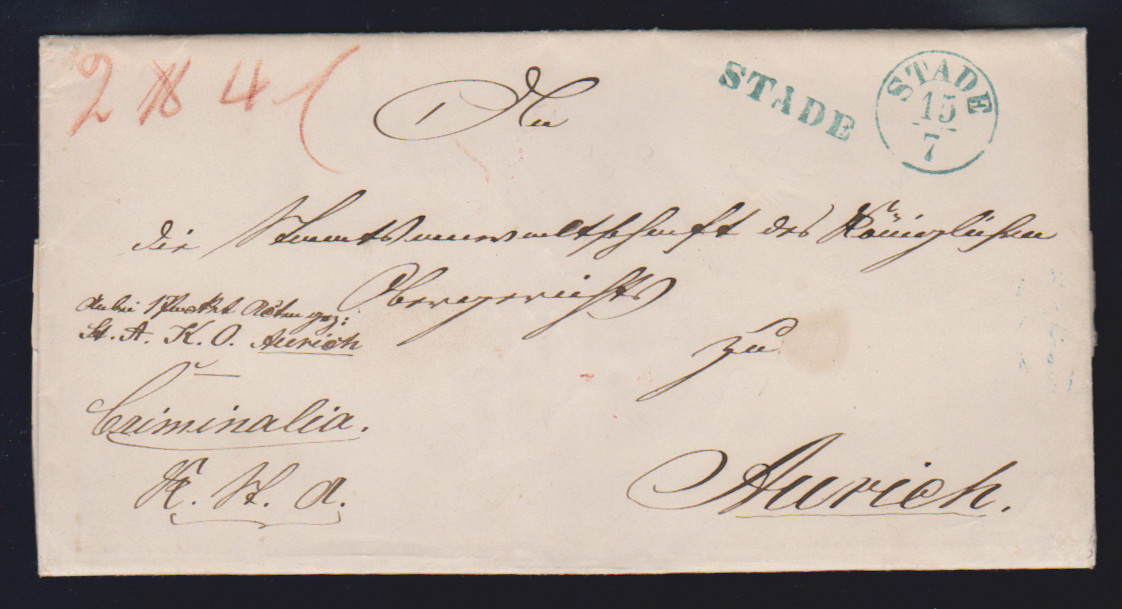 2 ℔ 4
STADE
STADE
15
7
An
die Staatsanwaltschaft des Königlichen
Obergerichts
zu
Aurich.
Anbei 1 Packet Acten gez:
St. A. K. O. Aurich
Criminalia.
K. St. A.